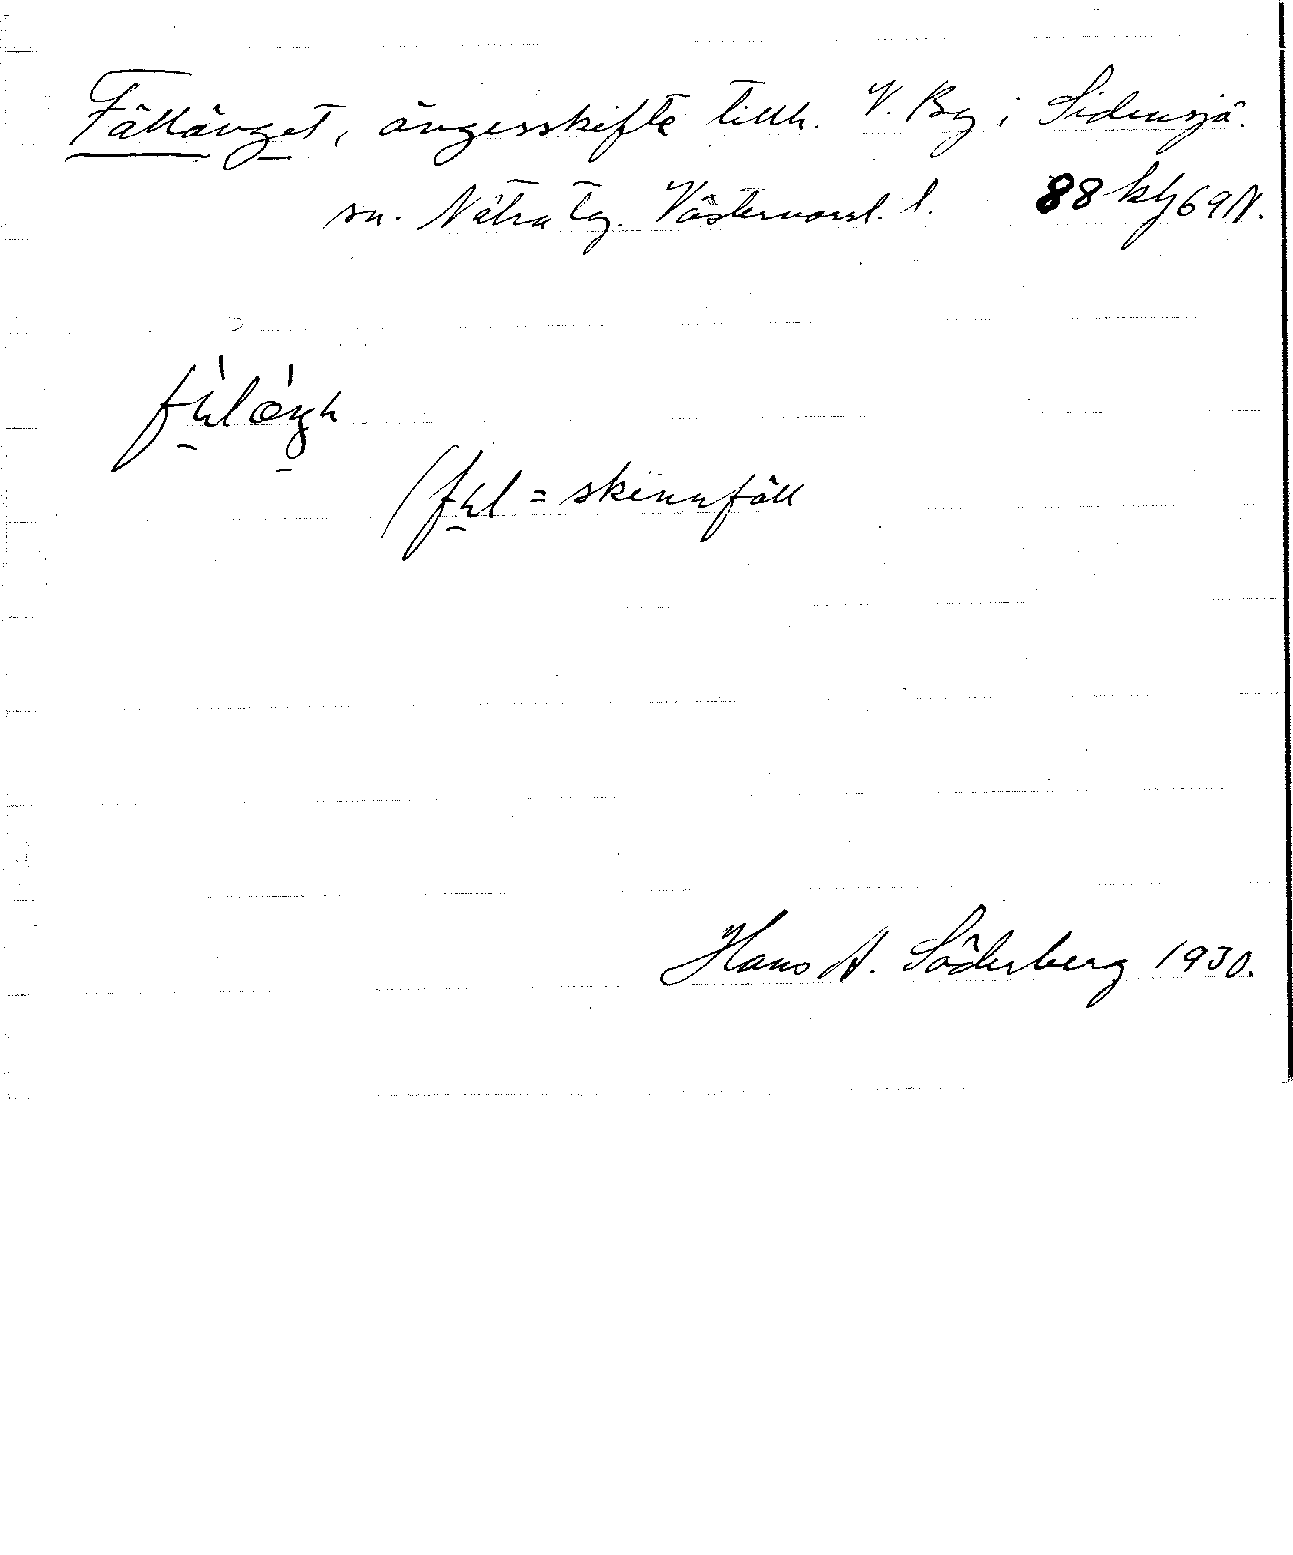 Fälländget, ängesskifte tillh. V. By i Sidensjö.
sn. Nätra tg. Västernorrl. l. 88
(= skinnfäll
Hans A. Söderberg 1930.